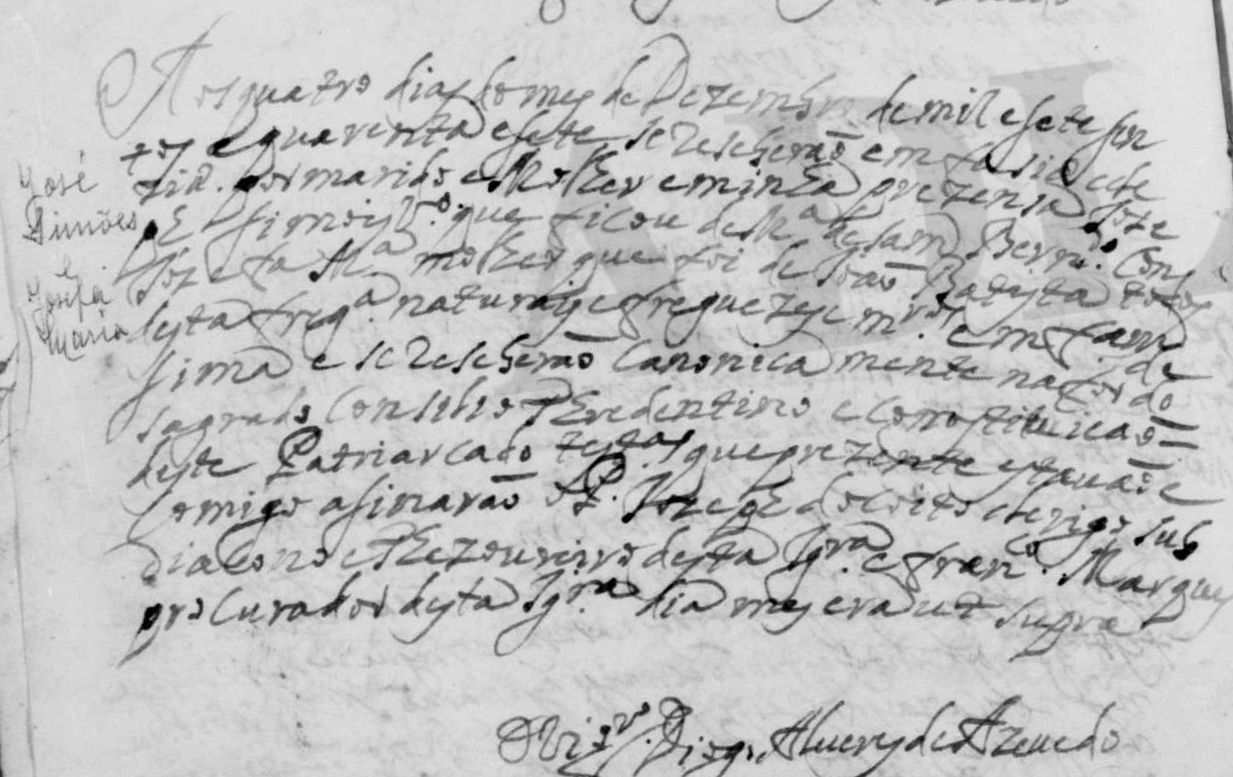 José
Simões
e
Josefa
Maria
Aos quatro dias do mes de Dezembro de mil e sete sen
tos e quarenta e sete se reseberaõ em fasie de
por marido e Molher em minha prezensa Joze
Simois V.o que ficou de M.a de sam Bern.do Con
Jozefa M.a molher que foi de Joaõ Batysta todos
desta freg.a naturais e freguezes em
sima e se reseberaõ Canonica mente na for
sagrado Consilio Tredentino e constituicaõ
deste Patriarcado test.as que prezente estavaõ e
Comigo asinaraõ o P. Joze do couto clerigo sub
diacono e Thezoureiro desta Igr.a e Fran.co Marques
procurador desta Igr.a dia mes era ut supra
O Vig.ro Diogo Alveres de Azevedo